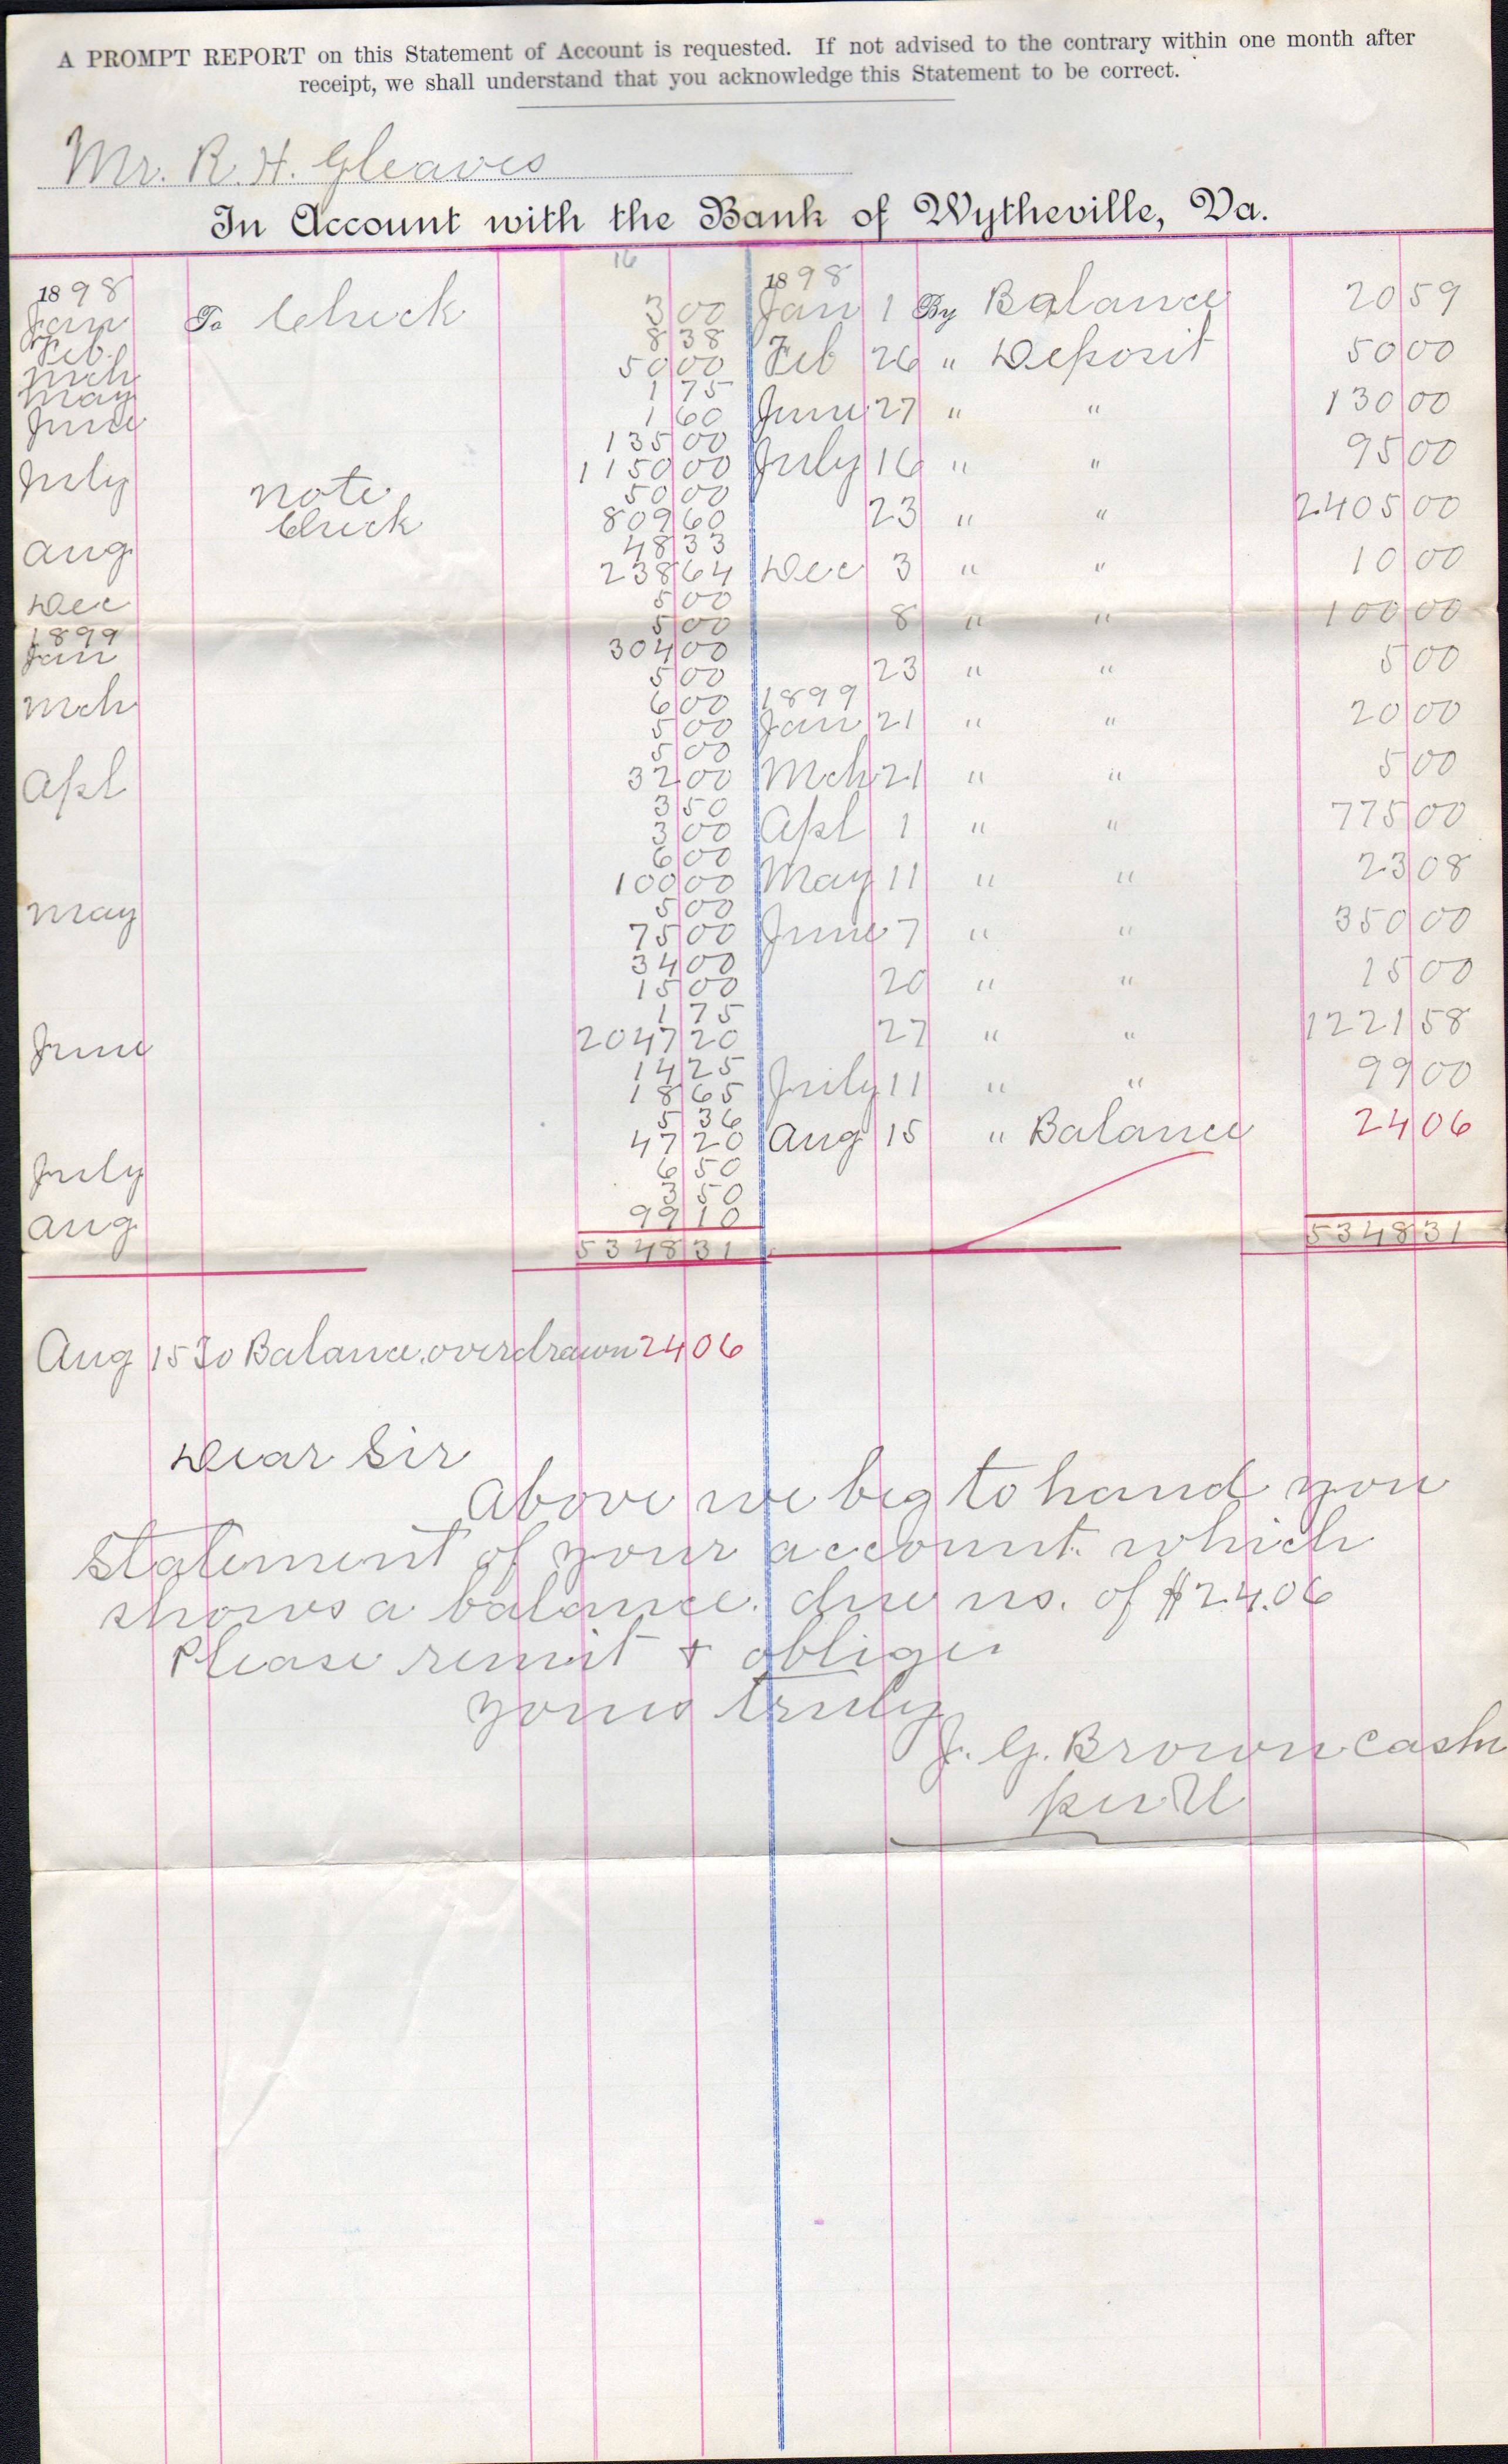 A PROMPT REPORT on this Statement of Account is requested. If not advised to the contrary within one month after
receipt, we shall understand that you acknowledge this Statement to be correct.
Mr. R. H. Gleaves
In Account with the Bank of Wytheville, Va.
16
1898
Jan To Check 3 00
Feb. 8 38
Mch 50 00
May 1 75
June 1 60
135 00
July 1150 00
note 50 00
Check 809 60
Aug 48 33
238 64
Dec 5 00
5 00
1899
Jan 304 00
5 00
Mch 6 00
5 00
5 00
Apl 32 00
3 50
3 00
6 00
100 00
May 5 00
75 00
34 00
15 00
1 75
June 2047 20
14 25
18 65
5 36
47 20
July 6 50
3 50
Aug 99 10
5348 31
1898
Jan 1 By Balance 20 59
Feb 26 " Deposit 50 00
June 27 " " 130 00
July 16 " " 95 00
23 " " 2405 00
Dec 3 " " 10 00
8 " " 100 00
23 " " 5 00
1899
Jan 21 " " 20 00
Mch 21 " " 5 00
Apl 1 " " 775 00
May 11 " " 23 08
June 7 " " 350 00
20 " " 15 00
27 " " 1221 58
July 11 " " 99 00
Aug 15 " Balance 24 06
5348 31
Aug 15 To Balance overdrawn 24 06
Dear Sir
Above we beg to hand you
statement of your account which
shows a balance due us. of $24.06
Please remit & oblige
yours truly
J. G. Brown Cashr
per U